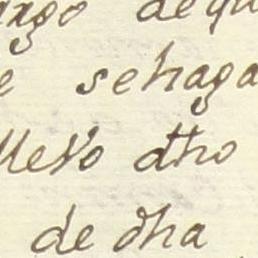 argo dequ
e sehaga
llevo dho
de dha